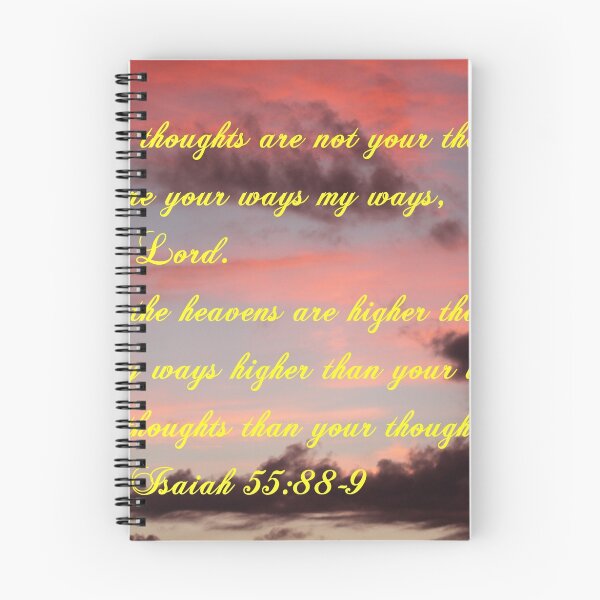 thoughts are not your
your ways my ways,
Lord.
the heavens are higher
ways higher than your
houghts than your though
Isaiah 55:88-9